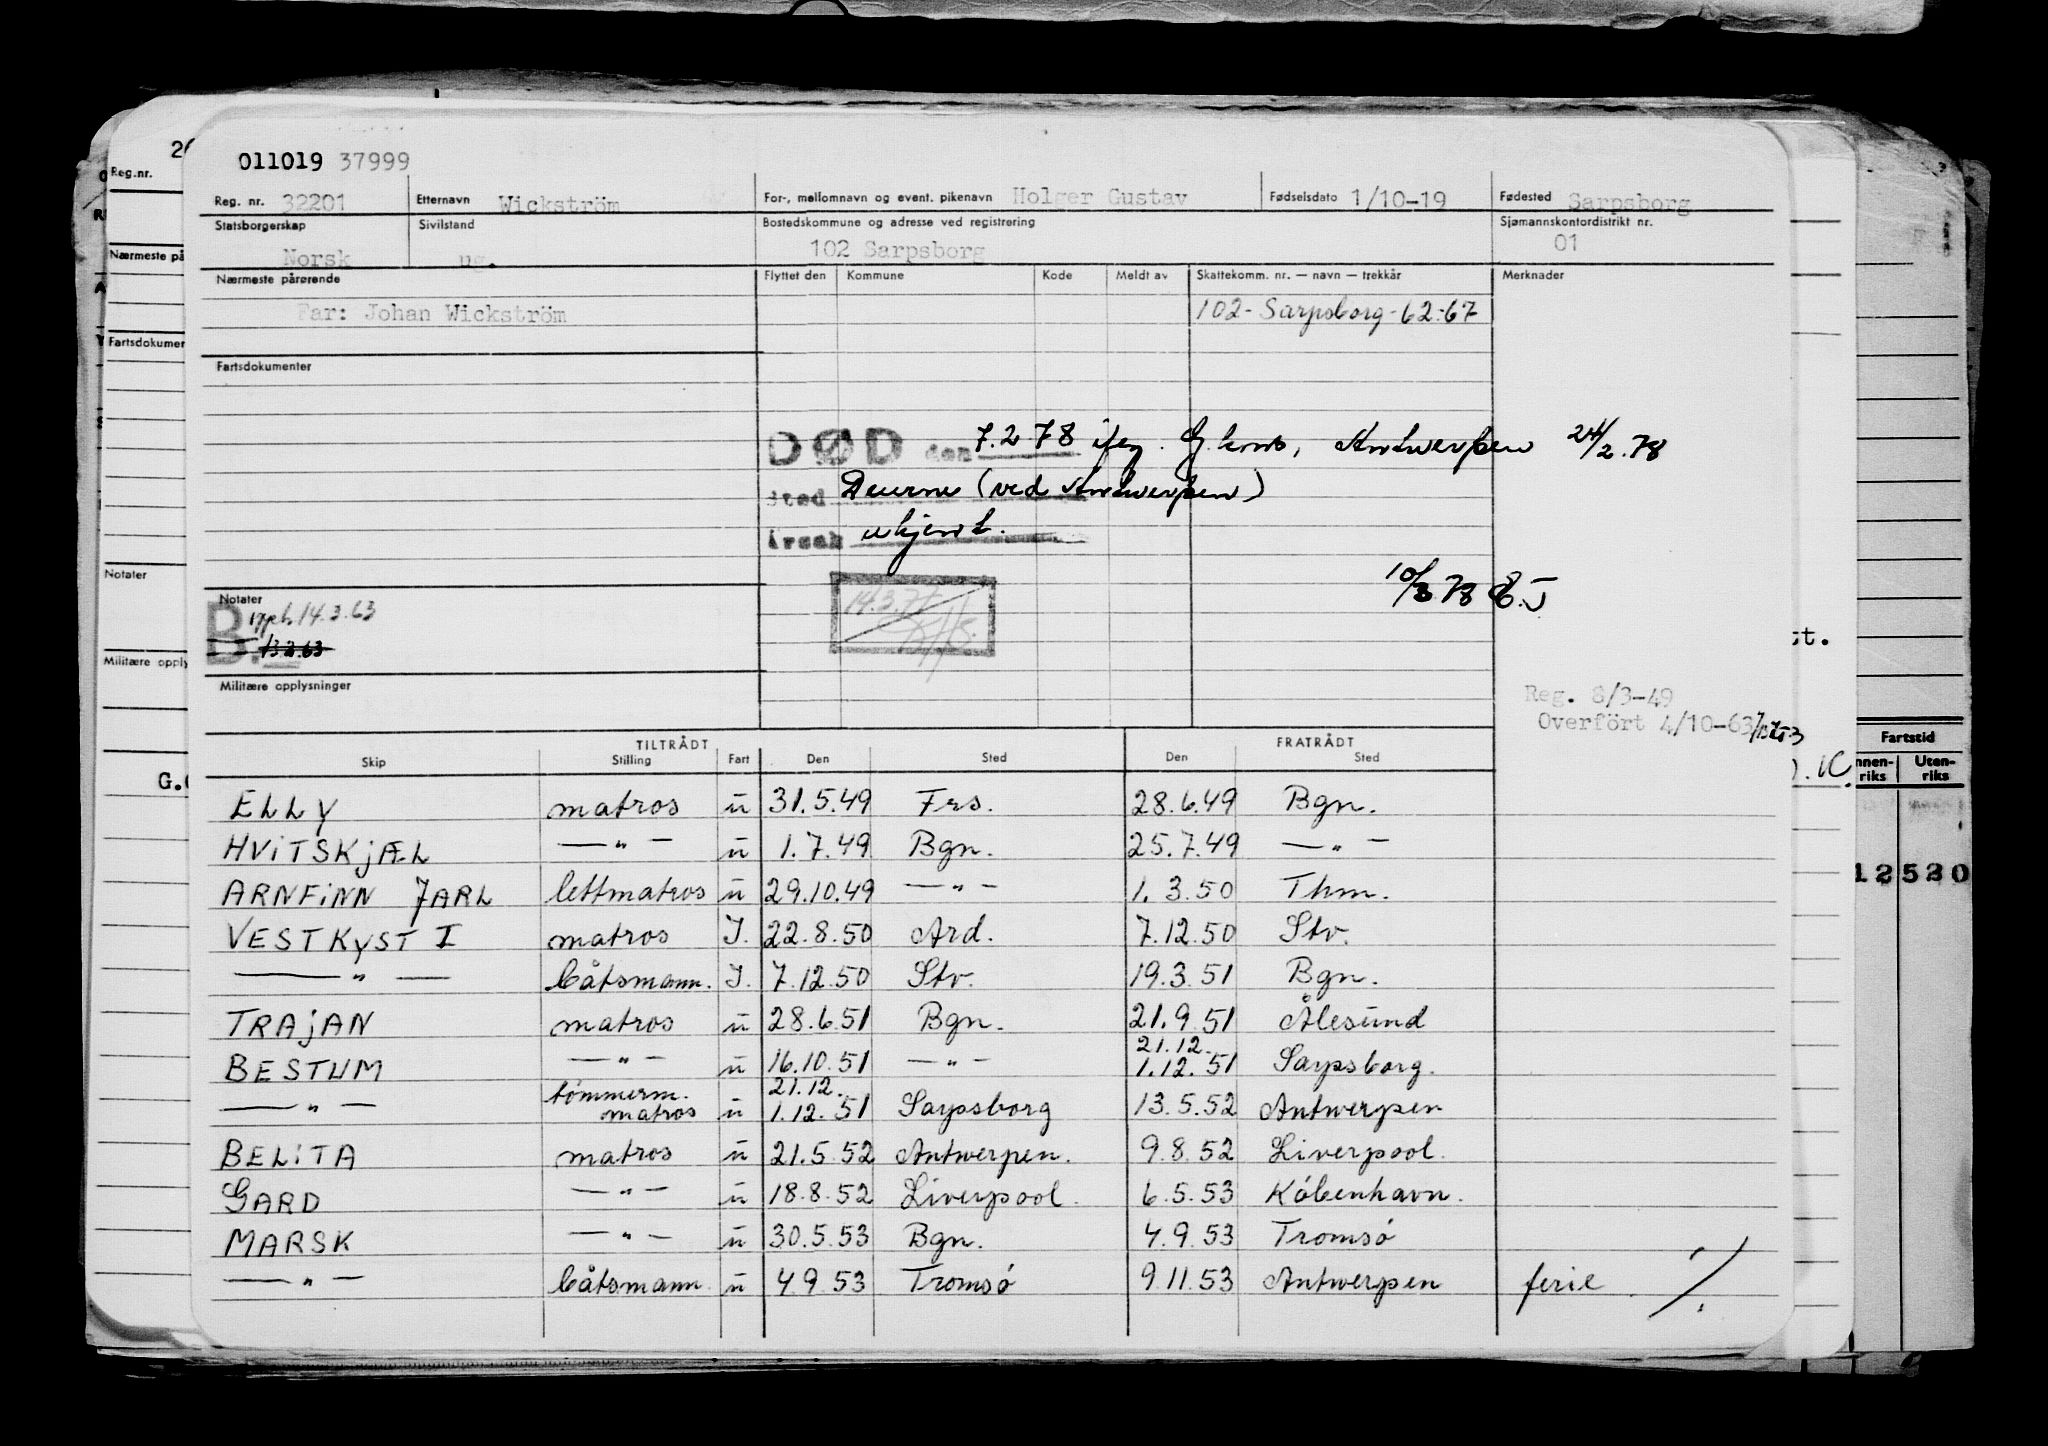 011019 37999
Reg. nr. 32201 Etternavn Wickström For-, mellomnavn og event. pikenavn Holger Gustav Fødselsdato 1/10-19 Fødested Sarpsborg
Statsborgerskap Norsk Sivilstand ug. Bostedskommune og adresse ved registrering 102 Sarpsborg Sjømannskontordistrikt nr. 01
Nærmeste pårørende Flyttet den Kommune Kode Meldt av Skattekomm. nr. — navn — trekkår Merknader
Far: Johan Wickström 102- Sarpsborg - 62-67
Fartsdokumenter
DØD den 7.2 78 iflg. G. kons, Antwerpen 24/2.78
Sted Deurne (ved Antwerpen)
Årsak ukjent.
10/3 78
14.3.77
Notater
B 14.3.63
B. 13.2.63
Militære opplysninger
Reg. 8/3-49
Overført 4/10-63
TILTRÅDT FRATRÅDT
Skip Stilling Fart Den Sted Den Sted
ELLY matros u 31.5.49 Frs. 28.6.49 Bgn.
HViTSKjÆL — " — u 1.7.49 Bgn. 25.7.49 — " —
ARNFiNN JARL lettmatros u 29.10.49 — " — 1.3.50 Thm.
VESTKYST I matros J. 22.8.50 Ard. 7.12.50 Stv.
— " — båtsmann. J. 7.12.50 Stv. 19.3.51 Bgn.
TRAjAN matros u 28.6.51 Bgn. 21.9.51 Ålesund
BESTUM — " — u 16.10.51 — " — 21.12. 1.12.51 Sarpsborg.
— " — tømmerm. matros u 21.12. 1.12.51 Sarpsborg 13.5.52 Antwerpen
BELiTA matros u 21.5.52 Antwerpen. 9.8.52 Liverpool.
GARD — " — u 18.8.52 Liverpool. 6.5.53 København.
MARSK — " — u 30.5.53 Bgn. 4.9.53 Tromsø
— " — båtsmann. u 4.9.53 Tromsø 9.11.53 Antwerpen ferie ./.
Reg.nr.
Nærmeste på
Fartsdokumen
Notater
Militære opply
Fartstid
Uten-
riks riks
12530